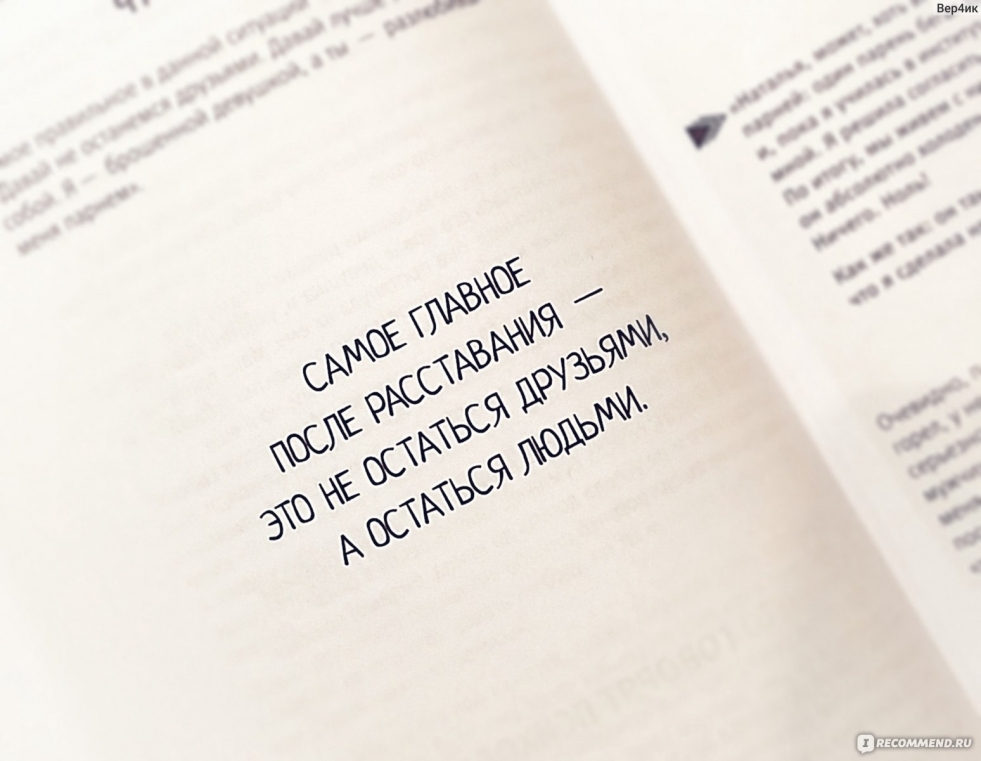 Вер4ик
мое правильное в данной ситуации
Давай не останемся друзьями. Давай лучше
собой. Я — брошенной девушкой, а ты — разлюбивш
меня парнем».
САМОЕ ГЛАВНОЕ
ПОСЛЕ РАССТАВАНИЯ —
ЭТО НЕ ОСТАТЬСЯ ДРУЗЬЯМИ,
А ОСТАТЬСЯ ЛЮДЬМИ.
«Наталья, может, хоть в
парней: один парень бе
и, пока я училась в институт
мной. Я решила согласить
По итогу, мы живем с н
он абсолютно холоден
Ничего. Ноль!
Как же так: он та
что я сделала н
Очевидно, п
горел, у н
серьезно
мужчи
меня
пос
IRECOMMEND.RU